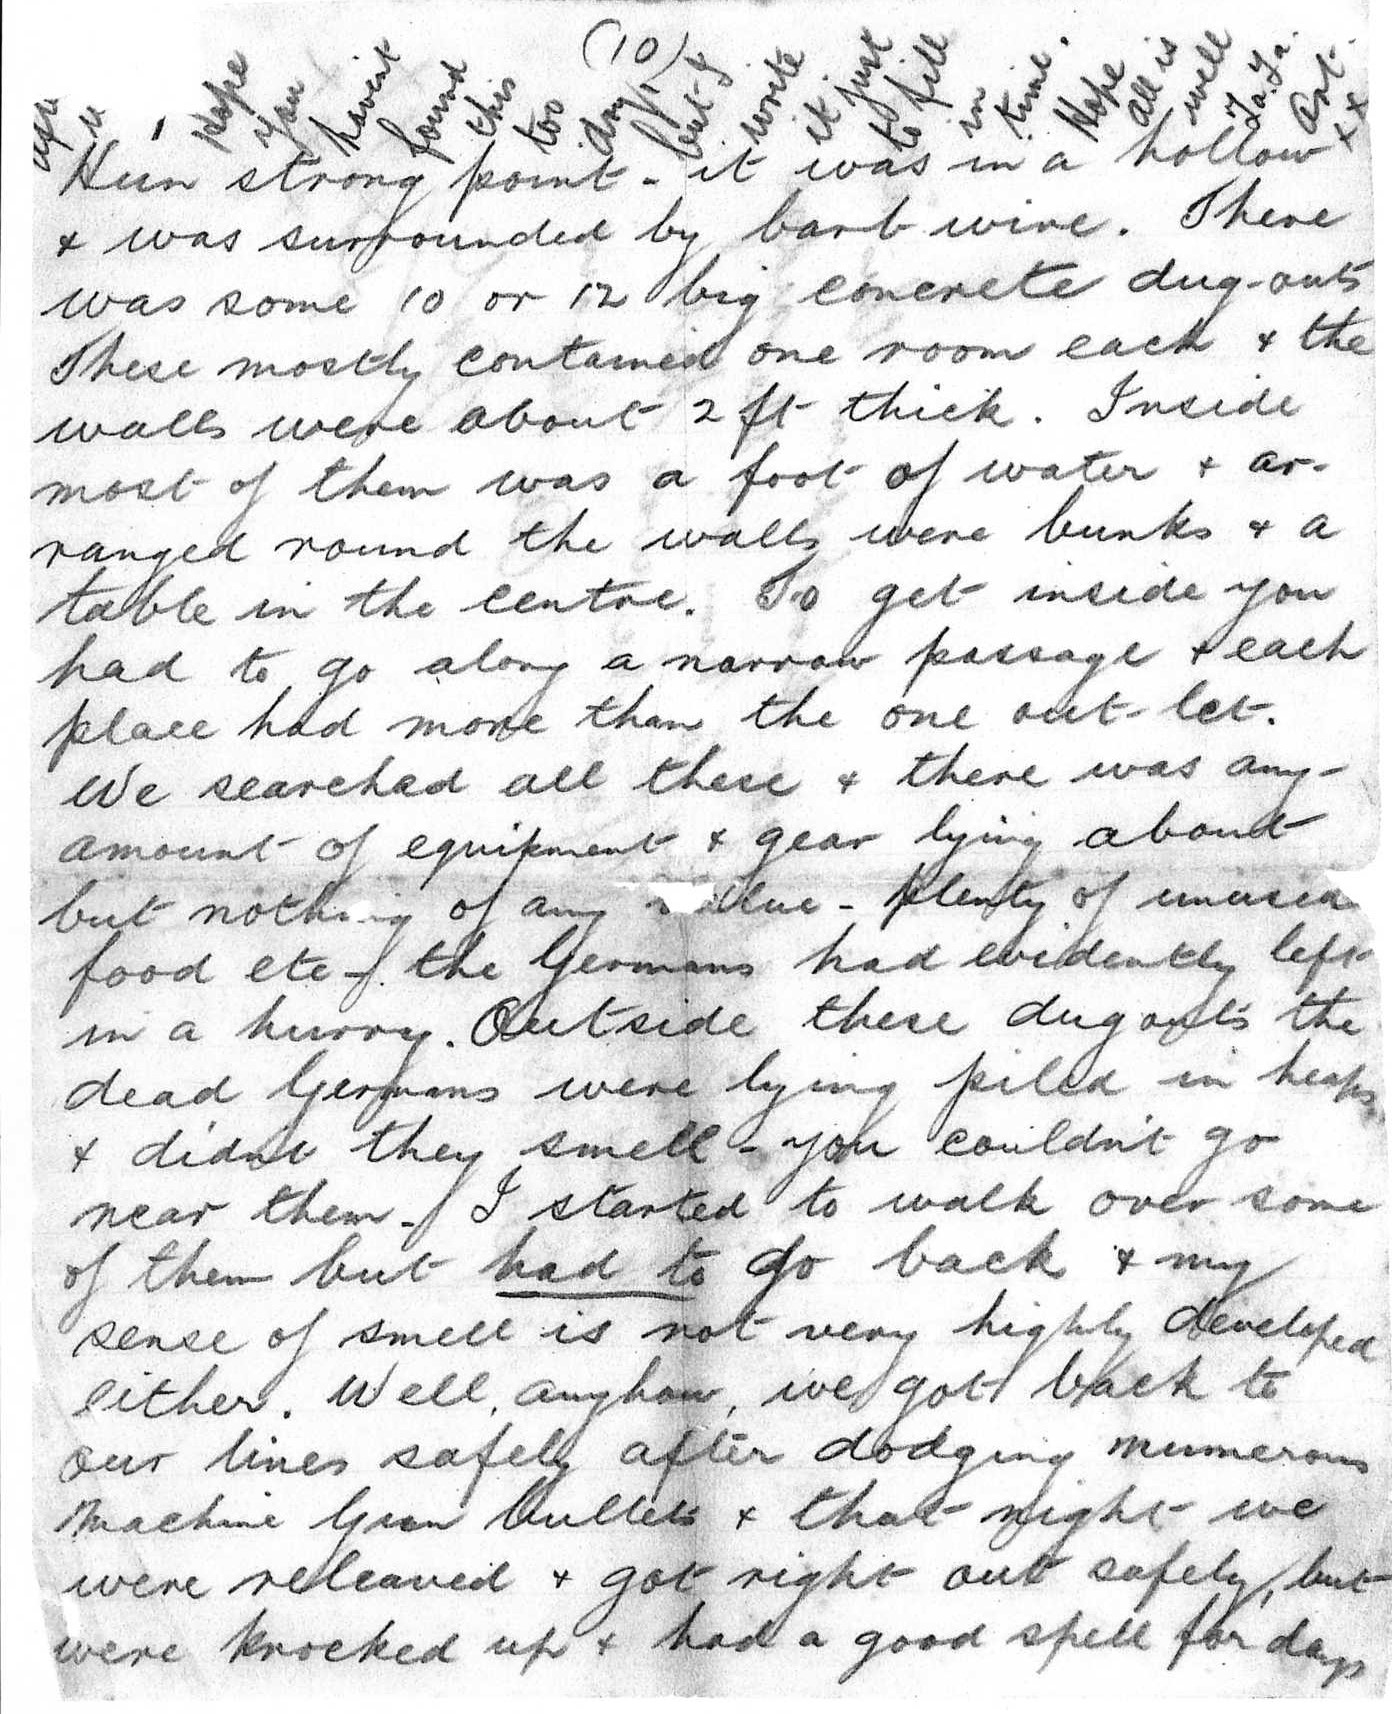 (10)
Hope you havent found this too dry, but I write it just to fill in time. Hope all is well Ta. Ta. Art. x x
Hun strong point - it was in a hollow
& was surrounded by barb wire. There
was some 10 or 12 big concrete dug-outs
These mostly contained one room each & the
walls were about 2 ft thick. Inside
most of them was a foot of water & ar-
ranged round the walls were bunks & a
table in the centre. To get inside you
had to go along a narrow passage & each
place had more than the one out-let.
We searched all these & there was any-
amount of equipment & gear lying about
but nothing of any value - plenty of unused
food etc -. the Germans had evidently left
in a hurry. Outside these dugouts the
dead Germans were lying piled in heaps
& didnt they smell - you couldn't go
near them - I started to walk over some
of them but had to go back & my
sense of smell is not very highly developed
either. Well, anyhow, we got back to
our lines safely after dodging numerous
Machine Gun bullets & that night we
were releaved & got right out safely, but
were knocked up & had a good spell for days